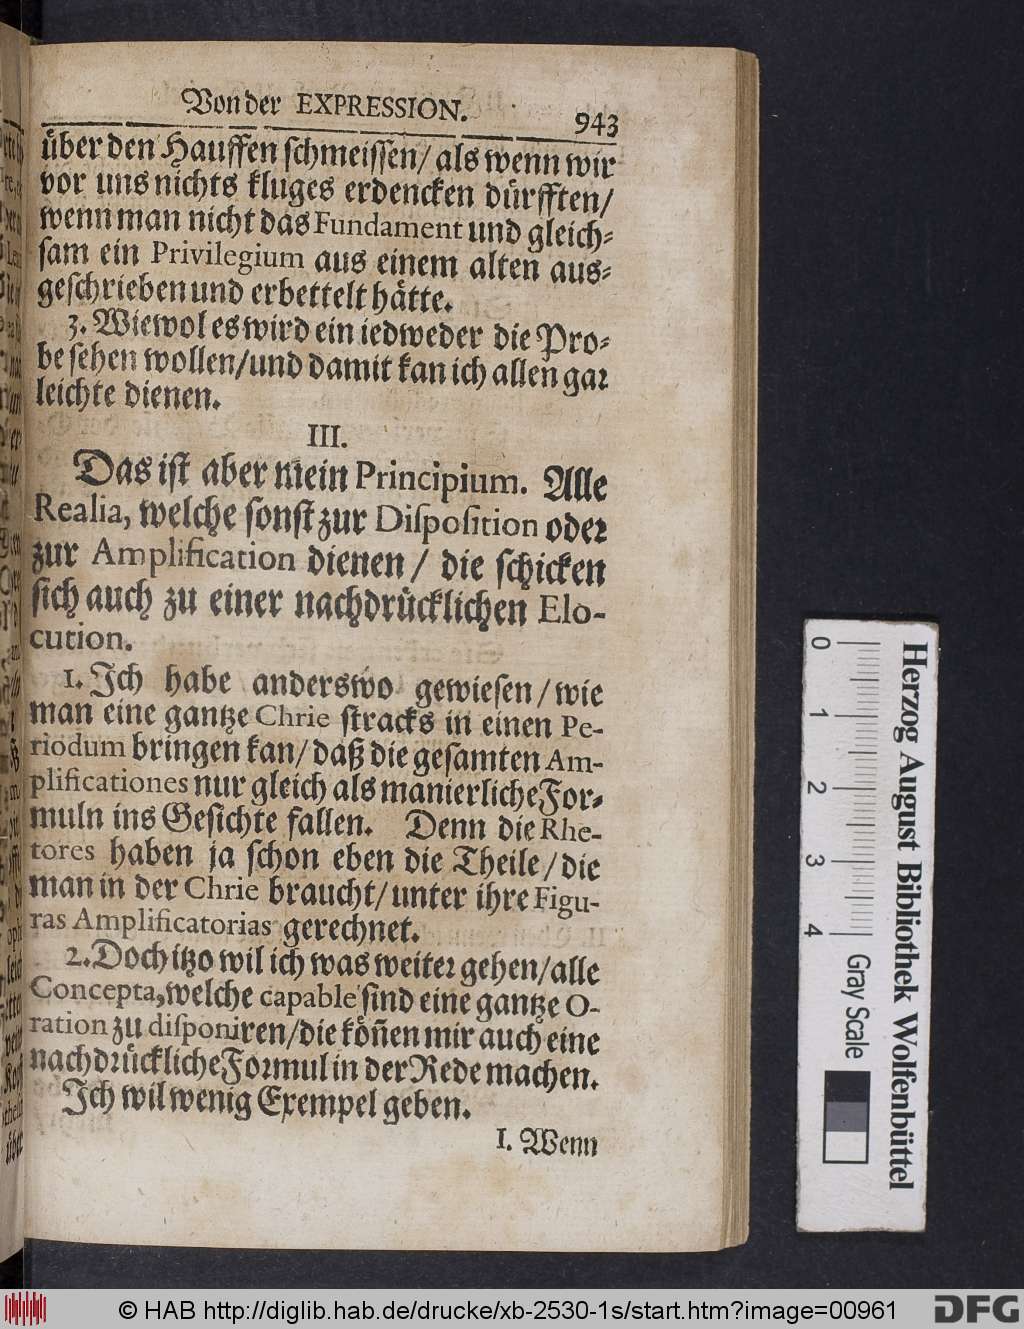 Von der EXPRESSION. 943
über den Hauffen schmeissen/ als wenn wir
vor uns nichts kluges erdencken dürfften/
wenn man nicht das Fundament und gleich⸗
sam ein Privilegium aus einem alten aus⸗
geschrieben und erbettelt hätte.
3. Wiewol es wird ein iedweder die Pro⸗
be sehen wollen/ und damit kan ich allen gar
leichte dienen.
III.
Das ist aber mein Principium. Alle
Realia, welche sonst zur Disposition oder
zur Amplification dienen/ die schicken
sich auch zu einer nachdrücklichen Elo-
cution.
1. Ich habe anderswo gewiesen/ wie
man eine gantze Chrie stracks in einen Pe-
riodum bringen kan/ daß die gesamten Am-
plificationes nur gleich als manierliche For⸗
muln ins Gesichte fallen. Denn die Rhe-
tores haben ja schon eben die Theile/ die
man in der Chrie braucht/ unter ihre Figu-
ras Amplificatorias gerechnet.
2. Doch itzo wil ich was weiter gehen/ alle
Concepta, welche capable sind eine gantze O-
ration zu disponiren/ die köñen mir auch eine
nachdrückliche Formul in der Rede machen.
Ich wil wenig Exempel geben.
1. Wenn
0 1 2 3 4
Gray Scale
Herzog August Bibliothek Wolfenbüttel
© HAB http://diglib.hab.de/drucke/xb-2530-1s/start.htm?image=00961
DFG